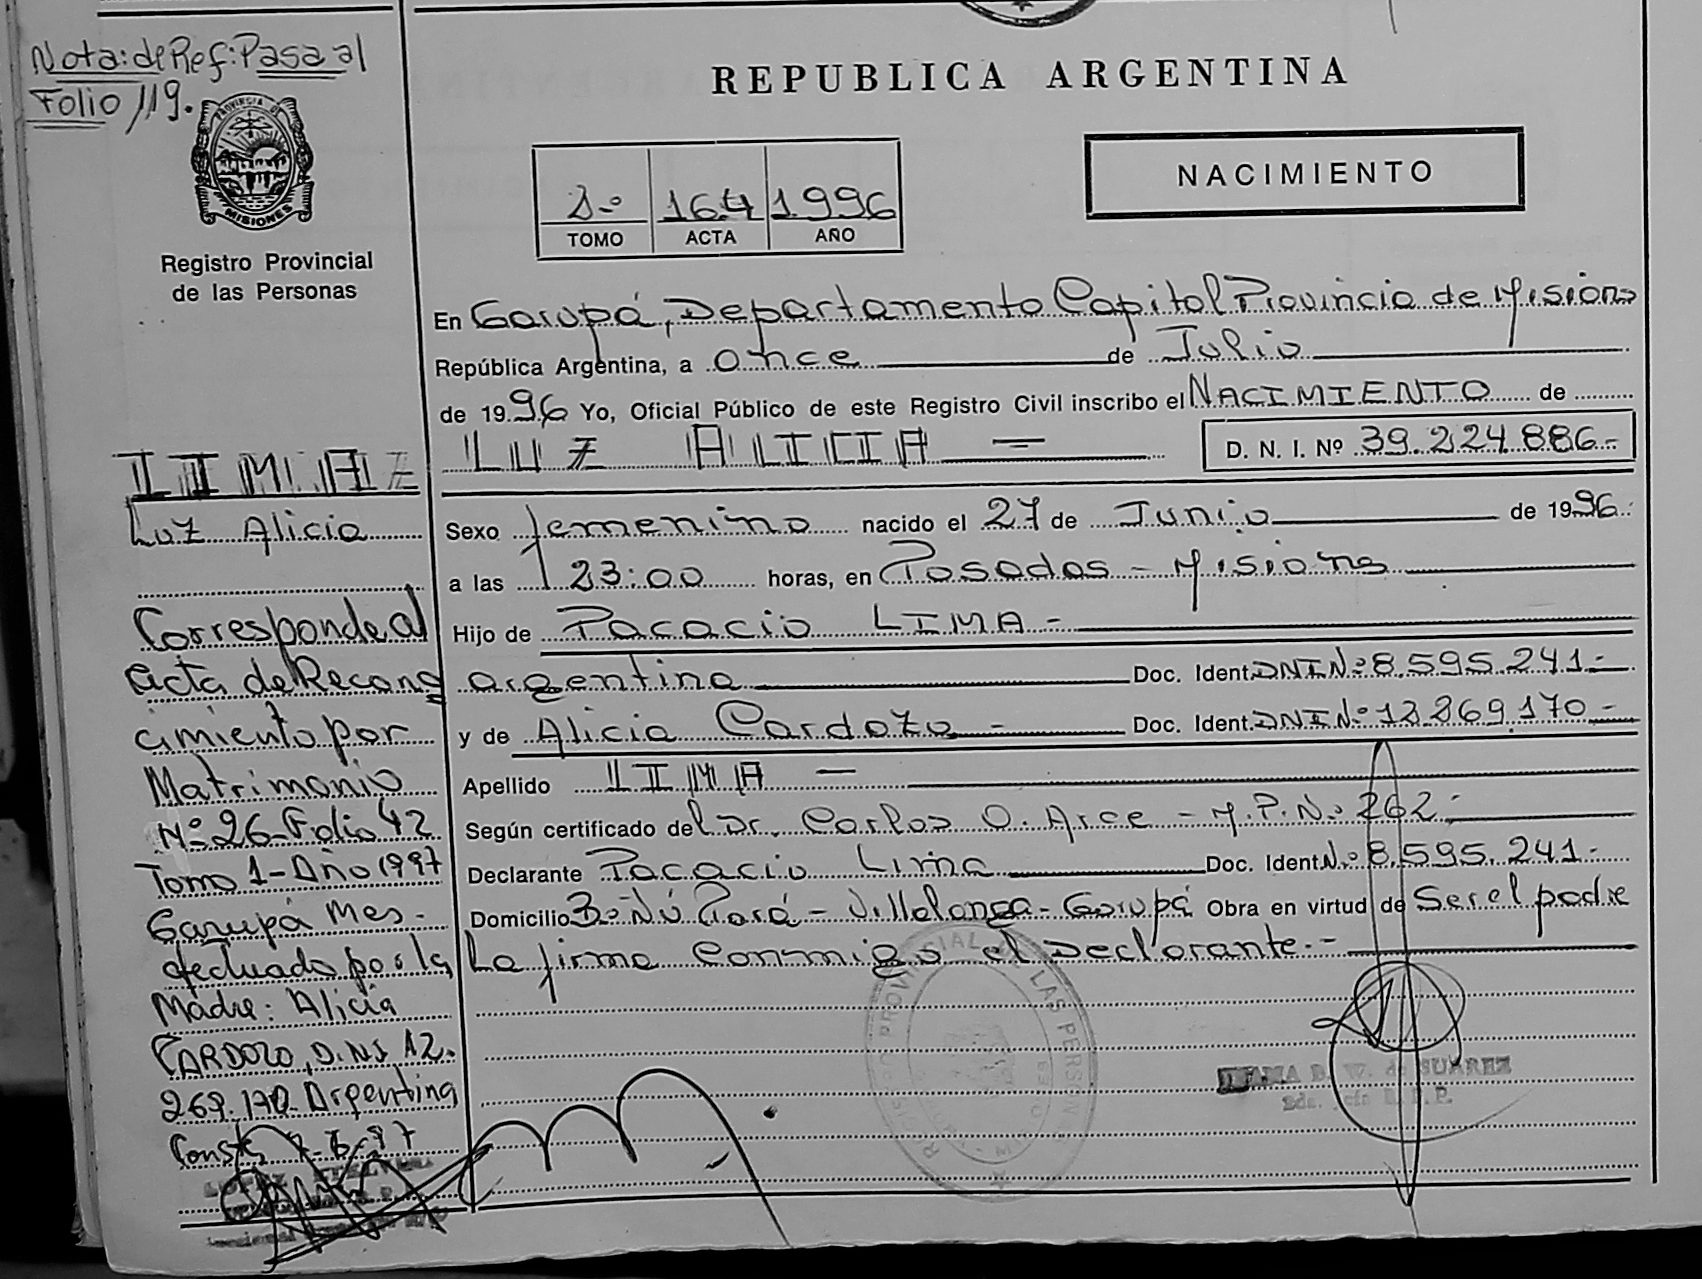 Nota: de Ref: Pasa al
Folio 119.
PROVINCIA DE
MISIONES
Registro Provincial
de las Personas
REPUBLICA ARGENTINA
NACIMIENTO
1-º 164 1996
TOMO ACTA AÑO
En Garupá, Departamento Capital Provincia de Misiones
República Argentina, a once de Julio
de 1996 Yo, Oficial Público de este Registro Civil inscribo el NACIMIENTO de
LUZ ALICIA =
D. N. I. Nº 39.224.886.-
Sexo femenino nacido el 27 de Junio de 1996.
a las 23:00 horas, en Posadas - Misiones
Hijo de Pacacio LIMA -
argentina Doc. Ident. DNI Nº 8.595.241.-
y de Alicia Cardozo - Doc. Ident. DNI Nº 12.269.170 -
Apellido LIMA -
Según certificado del Dr. Carlos O. Arce - M.P.Nº 262.-
Declarante Pacacio Lima Doc. Ident. Nº 8.595.241.-
Domicilio Bº Ñú Porá - Villalonga - Garupá Obra en virtud de Ser el padre
La firma Conmigo el Declarante.-
LIMA
Luz Alicia
Corresponde al
acta de Recono
cimiento por
Matrimonio
Nº 26 Folio 42
Tomo 1 - Año 1997
Garupá Mes.
efectuado por la
Madre: Alicia
CARDOZO, D.N.I 12.
269.170 Argentina
Conste
SUAREZ